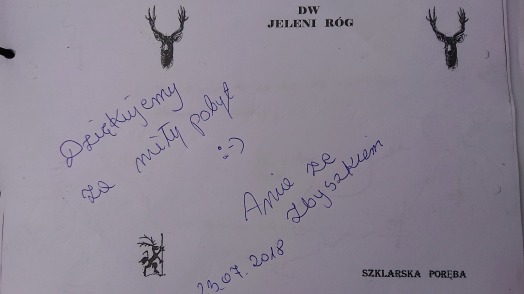 DW
JELENI RÓG
Dziękujemy
za miły pobyt
:-)
Ania ze
Zbyszkiem
23.07.2018
SZKLARSKA PORĘBA